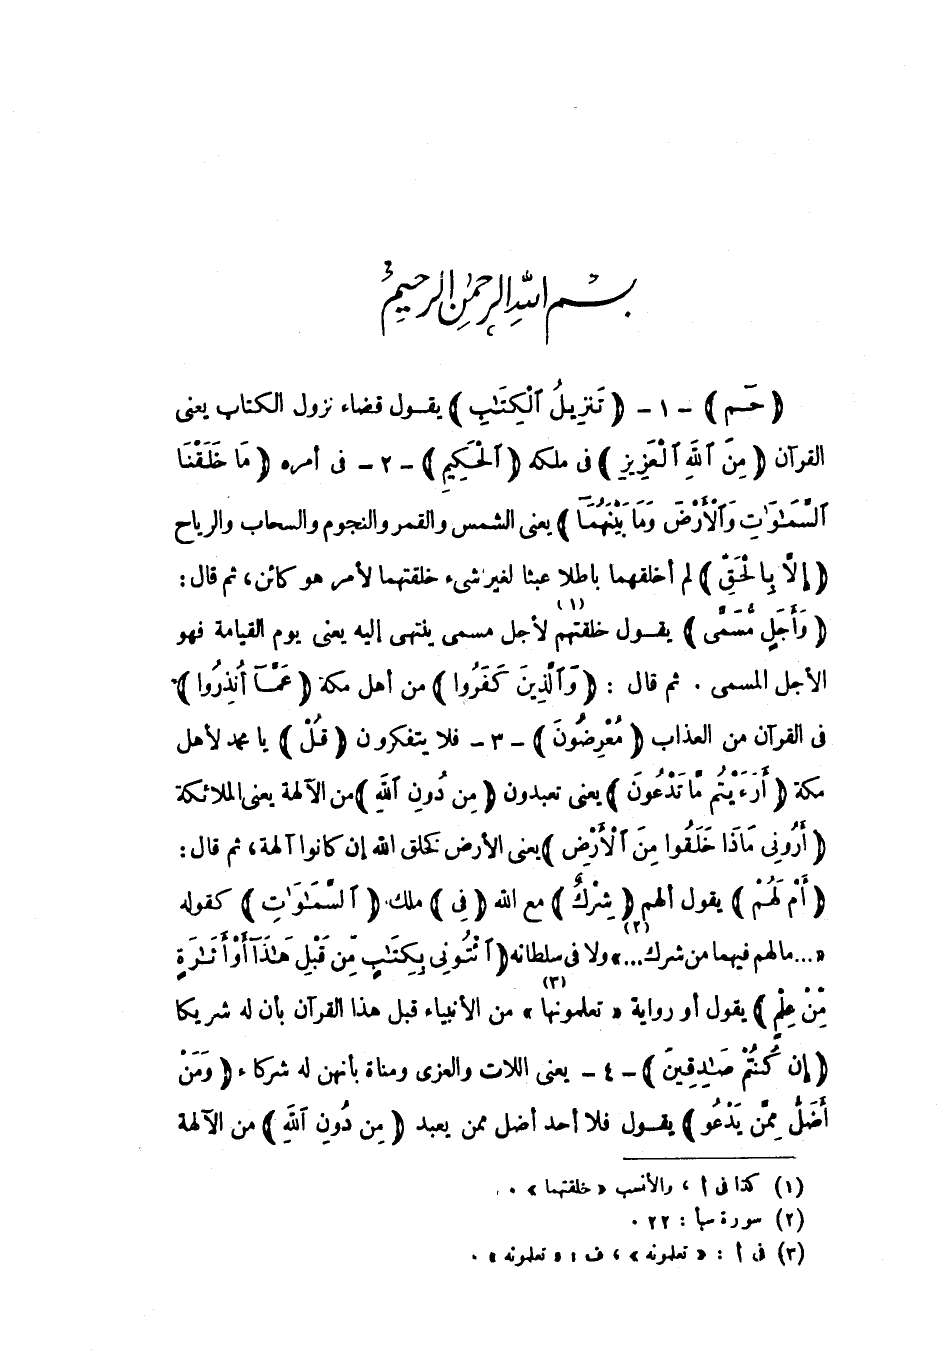 بسم الله الرحمن الرحيم
﴿ حـمۤ ﴾ - ١ - ﴿ تَنزِيلُ ٱلْكِتَٰبِ ﴾ يقـول قضاء نزول الكتاب يعنى
القرآن ﴿ مِنَ ٱللَّهِ ٱلْعَزِيزِ ﴾ فى ملكه ﴿ ٱلْحَكِيمِ ﴾ - ٢ - فى أمره ﴿ مَا خَلَقْنَا
ٱلسَّمَٰوَٰتِ وَٱلْأَرْضَ وَمَا بَيْنَهُمَآ ﴾ يعنى الشمس والقمر والنجوم والسحاب والرياح
﴿ إِلَّا بِٱلْحَقِّ ﴾ لم أخلقهما باطلا عبثا لغير شىء خلقتهما لأمر هو كائن، ثم قال :
﴿ وَأَجَلٍ مُّسَمًّى ﴾ يقـول خلقتهم (١) لأجل مسمى ينتهى إليه يعنى يوم القيامة فهو
الأجل المسمى . ثم قال : ﴿ وَٱلَّذِينَ كَفَرُوا ﴾ من أهل مكة ﴿ عَمَّآ أُنذِرُوا ﴾
فى القرآن من العذاب ﴿ مُعْرِضُونَ ﴾ - ٣ - فلا يتفكرون ﴿ قُلْ ﴾ يا محمد لأهل
مكة ﴿ أَرَءَيْتُم مَّا تَدْعُونَ ﴾ يعنى تعبدون ﴿ مِن دُونِ ٱللَّهِ ﴾ من الآلهة يعنى الملائكة
﴿ أَرُونِى مَاذَا خَلَقُوا مِنَ ٱلْأَرْضِ ﴾ يعنى الأرض كخلق الله إن كانوا آلهة، ثم قال :
﴿ أَمْ لَهُمْ ﴾ يقول ألهم ﴿ شِرْكٌ ﴾ مع الله ﴿ فِى ﴾ ملك ﴿ ٱلسَّمَٰوَٰتِ ﴾ كقوله
« ... مالهم فيهما من شرك ... » (٢) ولا فى سلطانه ﴿ ٱئْتُونِى بِكِتَٰبٍ مِّن قَبْلِ هَٰذَآ أَوْ أَثَٰرَةٍ
مِّنْ عِلْمٍ ﴾ يقول أو رواية « تعلمونها » (٣) من الأنبياء قبل هذا القرآن بأن له شريكا
﴿ إِن كُنتُمْ صَٰدِقِينَ ﴾ - ٤ - يعنى اللات والعزى ومناة بأنهن له شركاء ﴿ وَمَنْ
أَضَلُّ مِمَّن يَدْعُو ﴾ يقـول فلا أحد أضل ممن يعبد ﴿ مِن دُونِ ٱللَّهِ ﴾ من الآلهة
(١) كذا فى أ ، والأنسب « خلقتهما » .
(٢) سورة سبأ : ٢٢ .
(٣) فى أ : « تعلمونه » ، ف : « تعلمونه » .